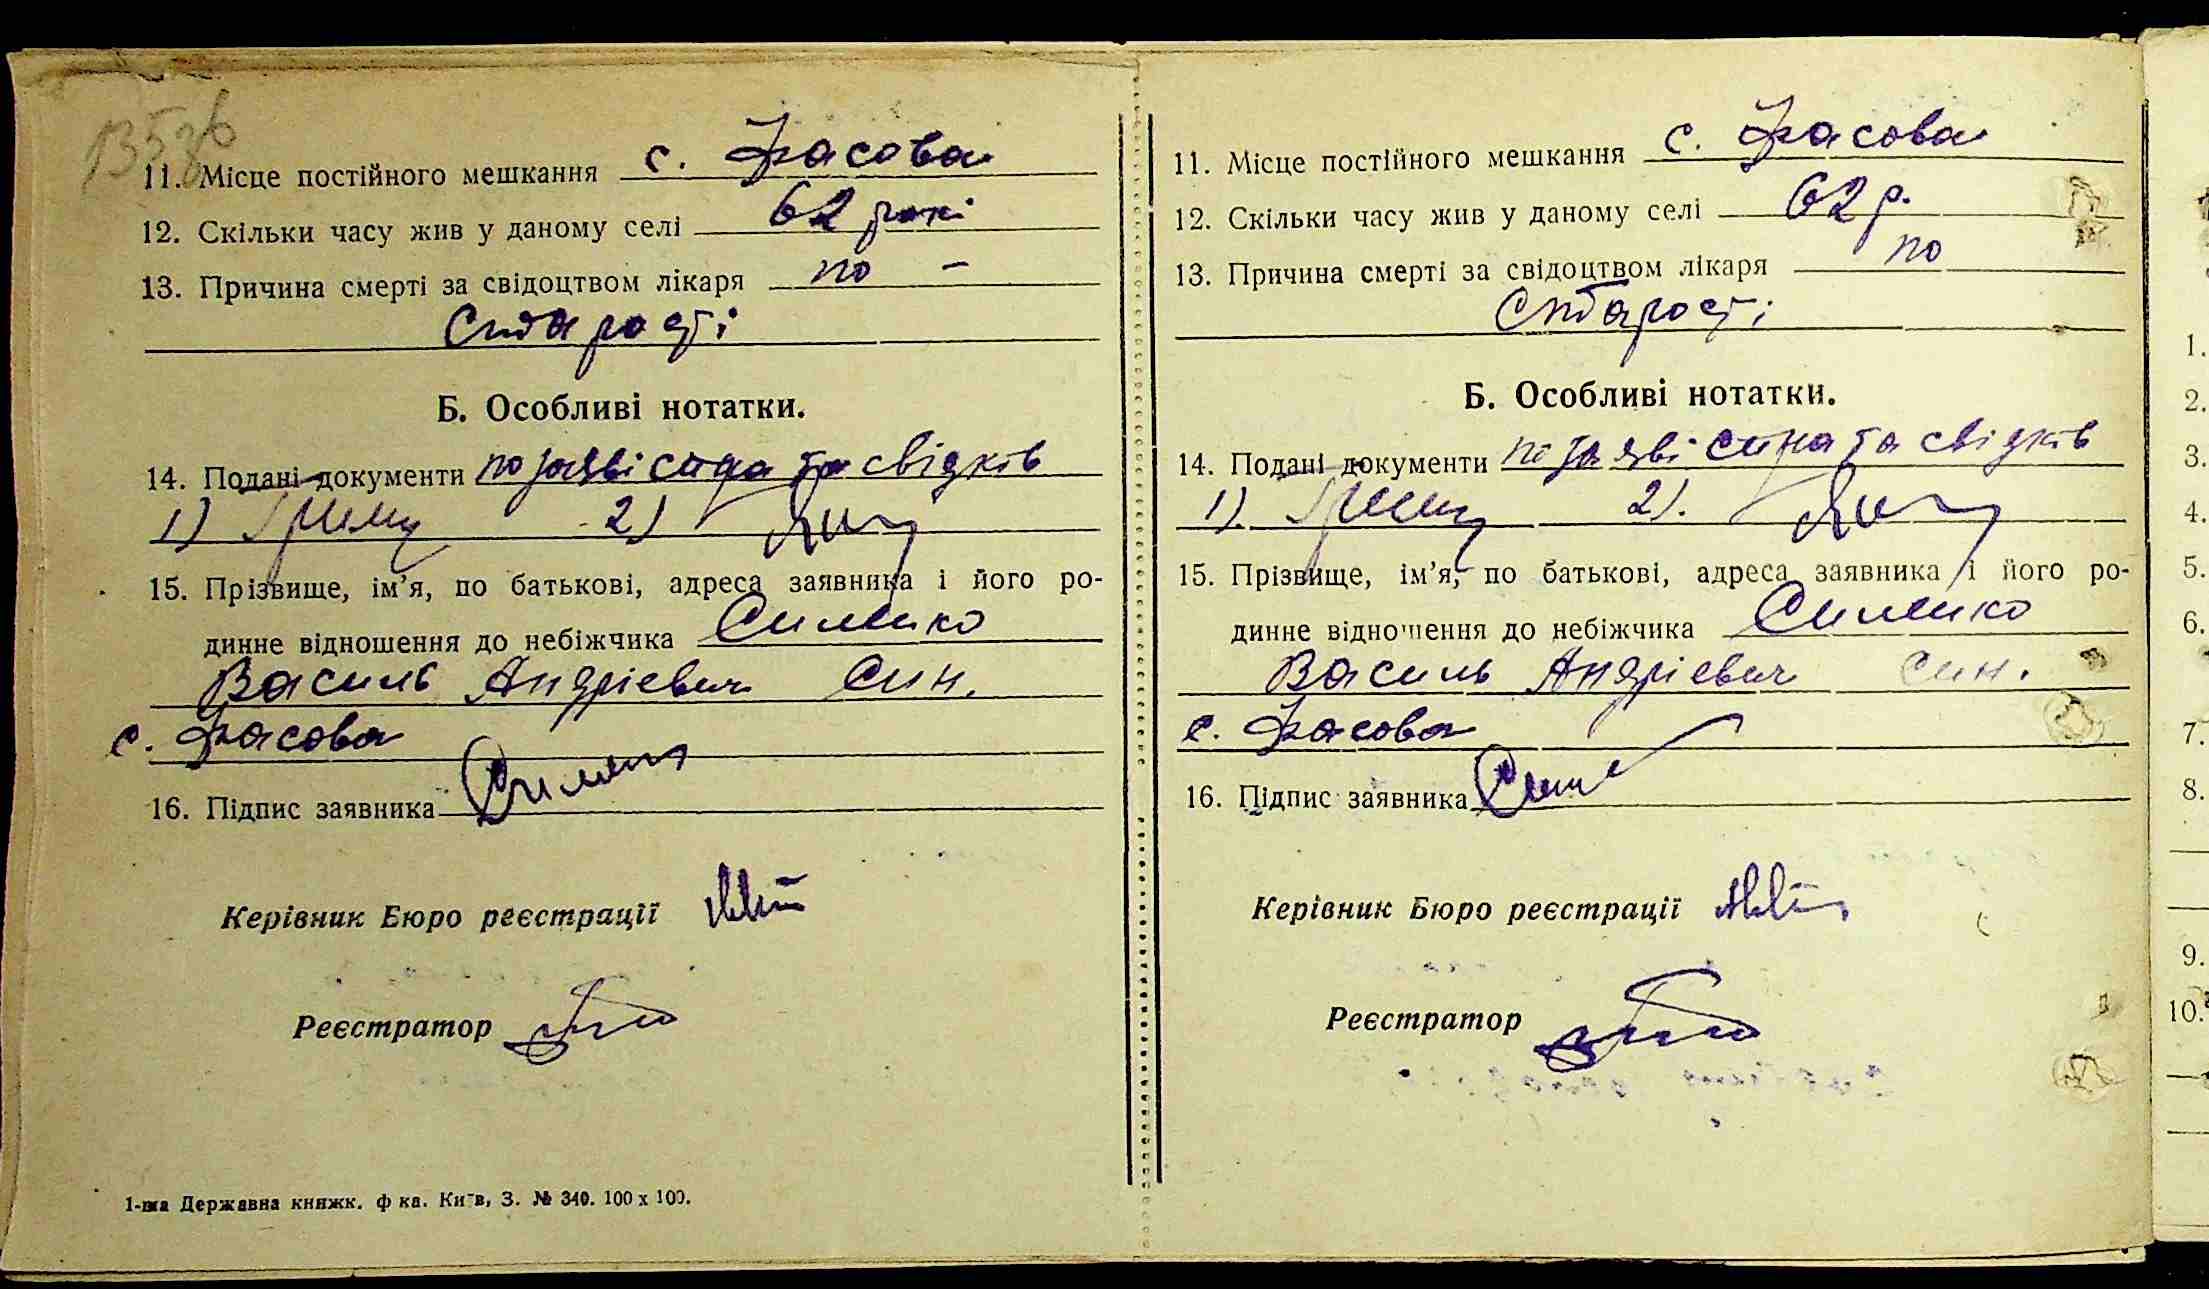 135зв
11. Місце постійного мешкання с. Красова
12. Скільки часу жив у даному селі 62 рокі
13. Причина смерті за свідоцтвом лікаря по –
старості
Б. Особливі нотатки.
14. Подані документи по заяві сина та свідків
1) 2)
15. Прізвище, ім'я, по батькові, адреса заявника і його ро-
динне відношення до небіжчика Симико
Василь Андрієвич син.
с. Красова
16. Підпис заявника
Керівник Бюро реєстрації
Реєстратор
1-ша Державна книжк. ф ка. Київ, З. № 340. 100 х 100.
11. Місце постійного мешкання с. Красова
12. Скільки часу жив у даному селі 62 р.
13. Причина смерті за свідоцтвом лікаря по
старості
Б. Особливі нотатки.
14. Подані документи по заяві сина та свідків
1). 2).
15. Прізвище, ім'я, по батькові, адреса заявника і його ро-
динне відношення до небіжчика Симико
Василь Андрієвич син.
с. Красова
16. Підпис заявника
Керівник Бюро реєстрації
Реєстратор
1.
2.
3.
4.
5.
6.
7.
8.
9.
10.